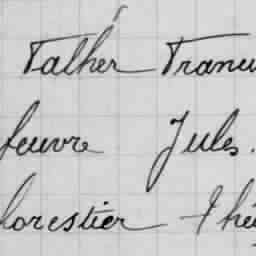 Talher Tranu
feuvre Jules.
lorestier Thé